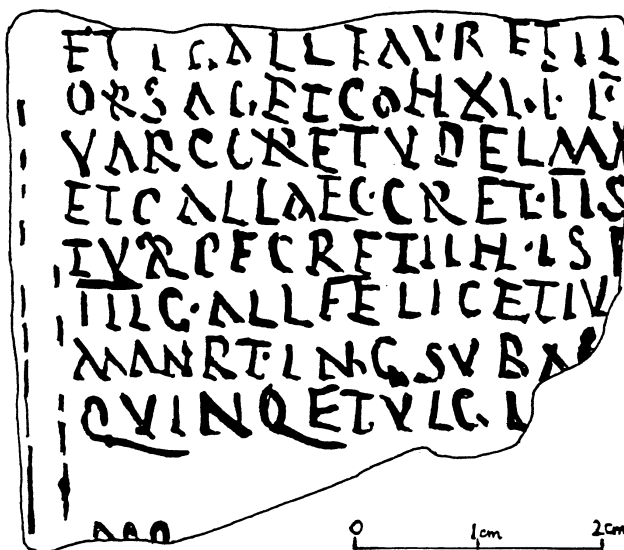 ETIGALLTAVRETIIL
ORSAG.ETCOHXI.I.F
VARCCCRETVDELMA
ETCALLAEC.CRET.IIS
IVRPECRETIIIH.IS
IIIG.ALLFELICETIV
MANRT.ING.SVBA
QVINQETVLG.
0 1cm 2cm